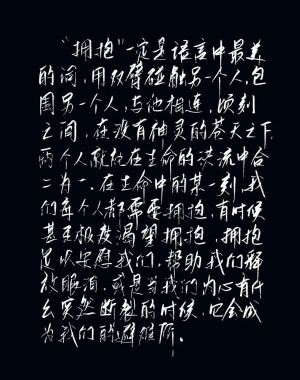 “拥抱”一定是语言中最美
的词,用双臂碰触另一个人,包
围另一个人,与他相连,顷刻
之间,在没有神灵的苍天之下,
两个人就能在生命的洪流中合
二为一.在生命中的某一刻,我
们每个人都需要拥抱,有时候
甚至极度渴望拥抱,拥抱
足以安慰我们,帮助我们释
放眼泪,或是当我们内心有什
么突然断裂的时候,它会成
为我们的避难所。